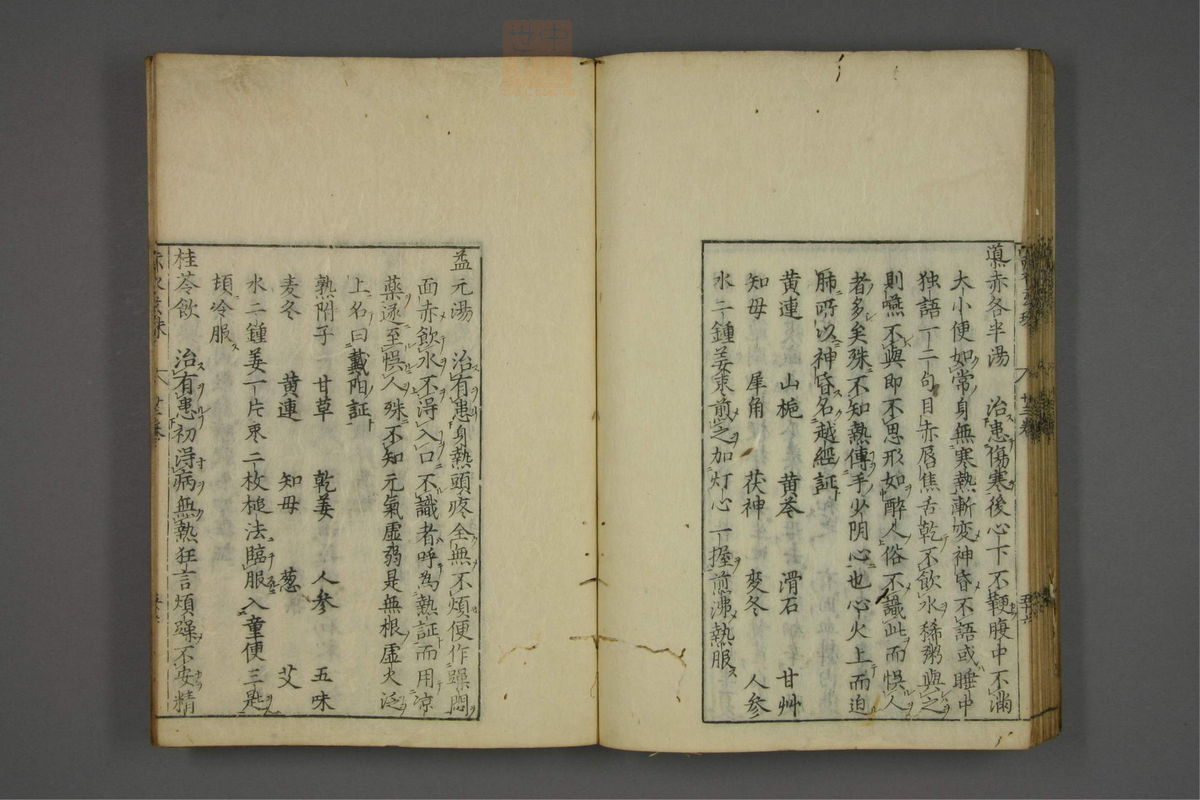 導赤各半湯　治患傷寒後心下不鞕腹中不滿
大小便如常身無寒熱漸変神昏不語或睡中
独語一二句目赤唇焦舌乾不飲水稀粥與之
則嚥不與即不思形如醉人俗不識此而悞人
者多矣殊不知熱傳手少阴心也心火上而迫
肺所以神昏名越經証
黄連　山梔　黄芩　滑石　甘艸
知母　犀角　茯神　麦冬　人参
水二鍾姜枣煎之加灯心一握煎沸熱服
益元湯　治有患身熱頭疼全無不煩便作躁悶
面赤飲水不得入口不識者呼為熱証而用凉
藥遂至悞人殊不知元氣虚弱是無根虚火泛
上名曰戴阳証
熟附子　甘草　乾姜　人参　五味
麦冬　黄連　知母　葱　艾
水二鍾姜一片枣二枚槌法臨服入童便三匙
頃冷服
桂苓飲　治有患初得病無熱狂言煩躁不安精